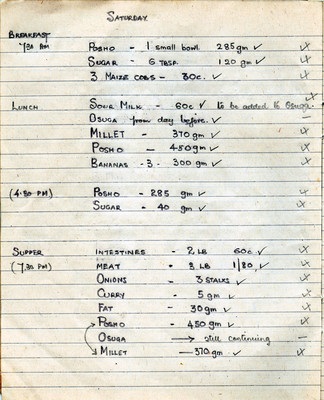 SATURDAY
BREAKFAST
7/30 AM POSHO - 1 small bowl. 285 gm ✓
SUGAR - 6 TBSP. 120 gm ✓
3 MAIZE COBS - 30c. ✓
LUNCH SOUR MILK - 60c ✓ to be added to Osuga.
OSUGA from day before. ✓
MILLET - 370 gm ✓
POSHO - 450 gm ✓
BANANAS - 3 - 300 gm ✓
(4.30 PM) POSHO - 285 gm ✓
SUGAR - 40 gm ✓
SUPPER INTESTINES - 2 LB 60c ✓
(7.30 PM) MEAT - 3 LB 1/80. ✓
ONIONS - 3 STALKS ✓
CURRY - 5 gm ✓
FAT - 30 gm ✓
POSHO - 450 gm ✓
OSUGA → still continuing
MILLET - 370 gm ✓